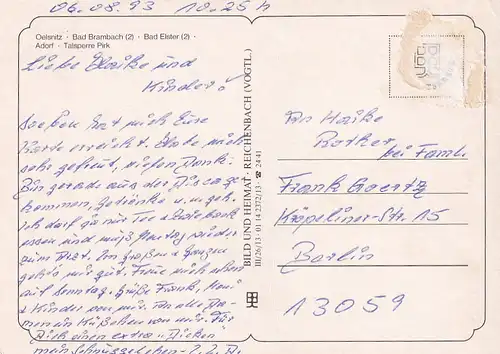 06.08.93 10.25 h
Oelsnitz · Bad Brambach (2) · Bad Elster (2) ·
Adorf · Talsperre Pirk
Liebe Haike und
Kinder!
Soeben hat mich Eure
Karte erreicht. Habe mich
sehr gefreut, vielen Dank.
Bin gerade aus der
kommen, Getränke u.
Ich darf ja nur Tee + Zwieback
essen und muß Montag wieder
zum Arzt. Im Großen + Ganzen
geht's mir gut. Freue mich schon
auf Sonntag. Grüße Frank,
+ Kinder von mir. An alle
ein Küßchen von mir. Für
Dich einen extra "Dicken"
mein
BILD UND HEIMAT · REICHENBACH (VOGTL.)
III/26/13 · 01 14 2372/13 · ☎ 24 41
An Haike
bei Faml.
Frank Goertz
Str. 15
Berlin
13059